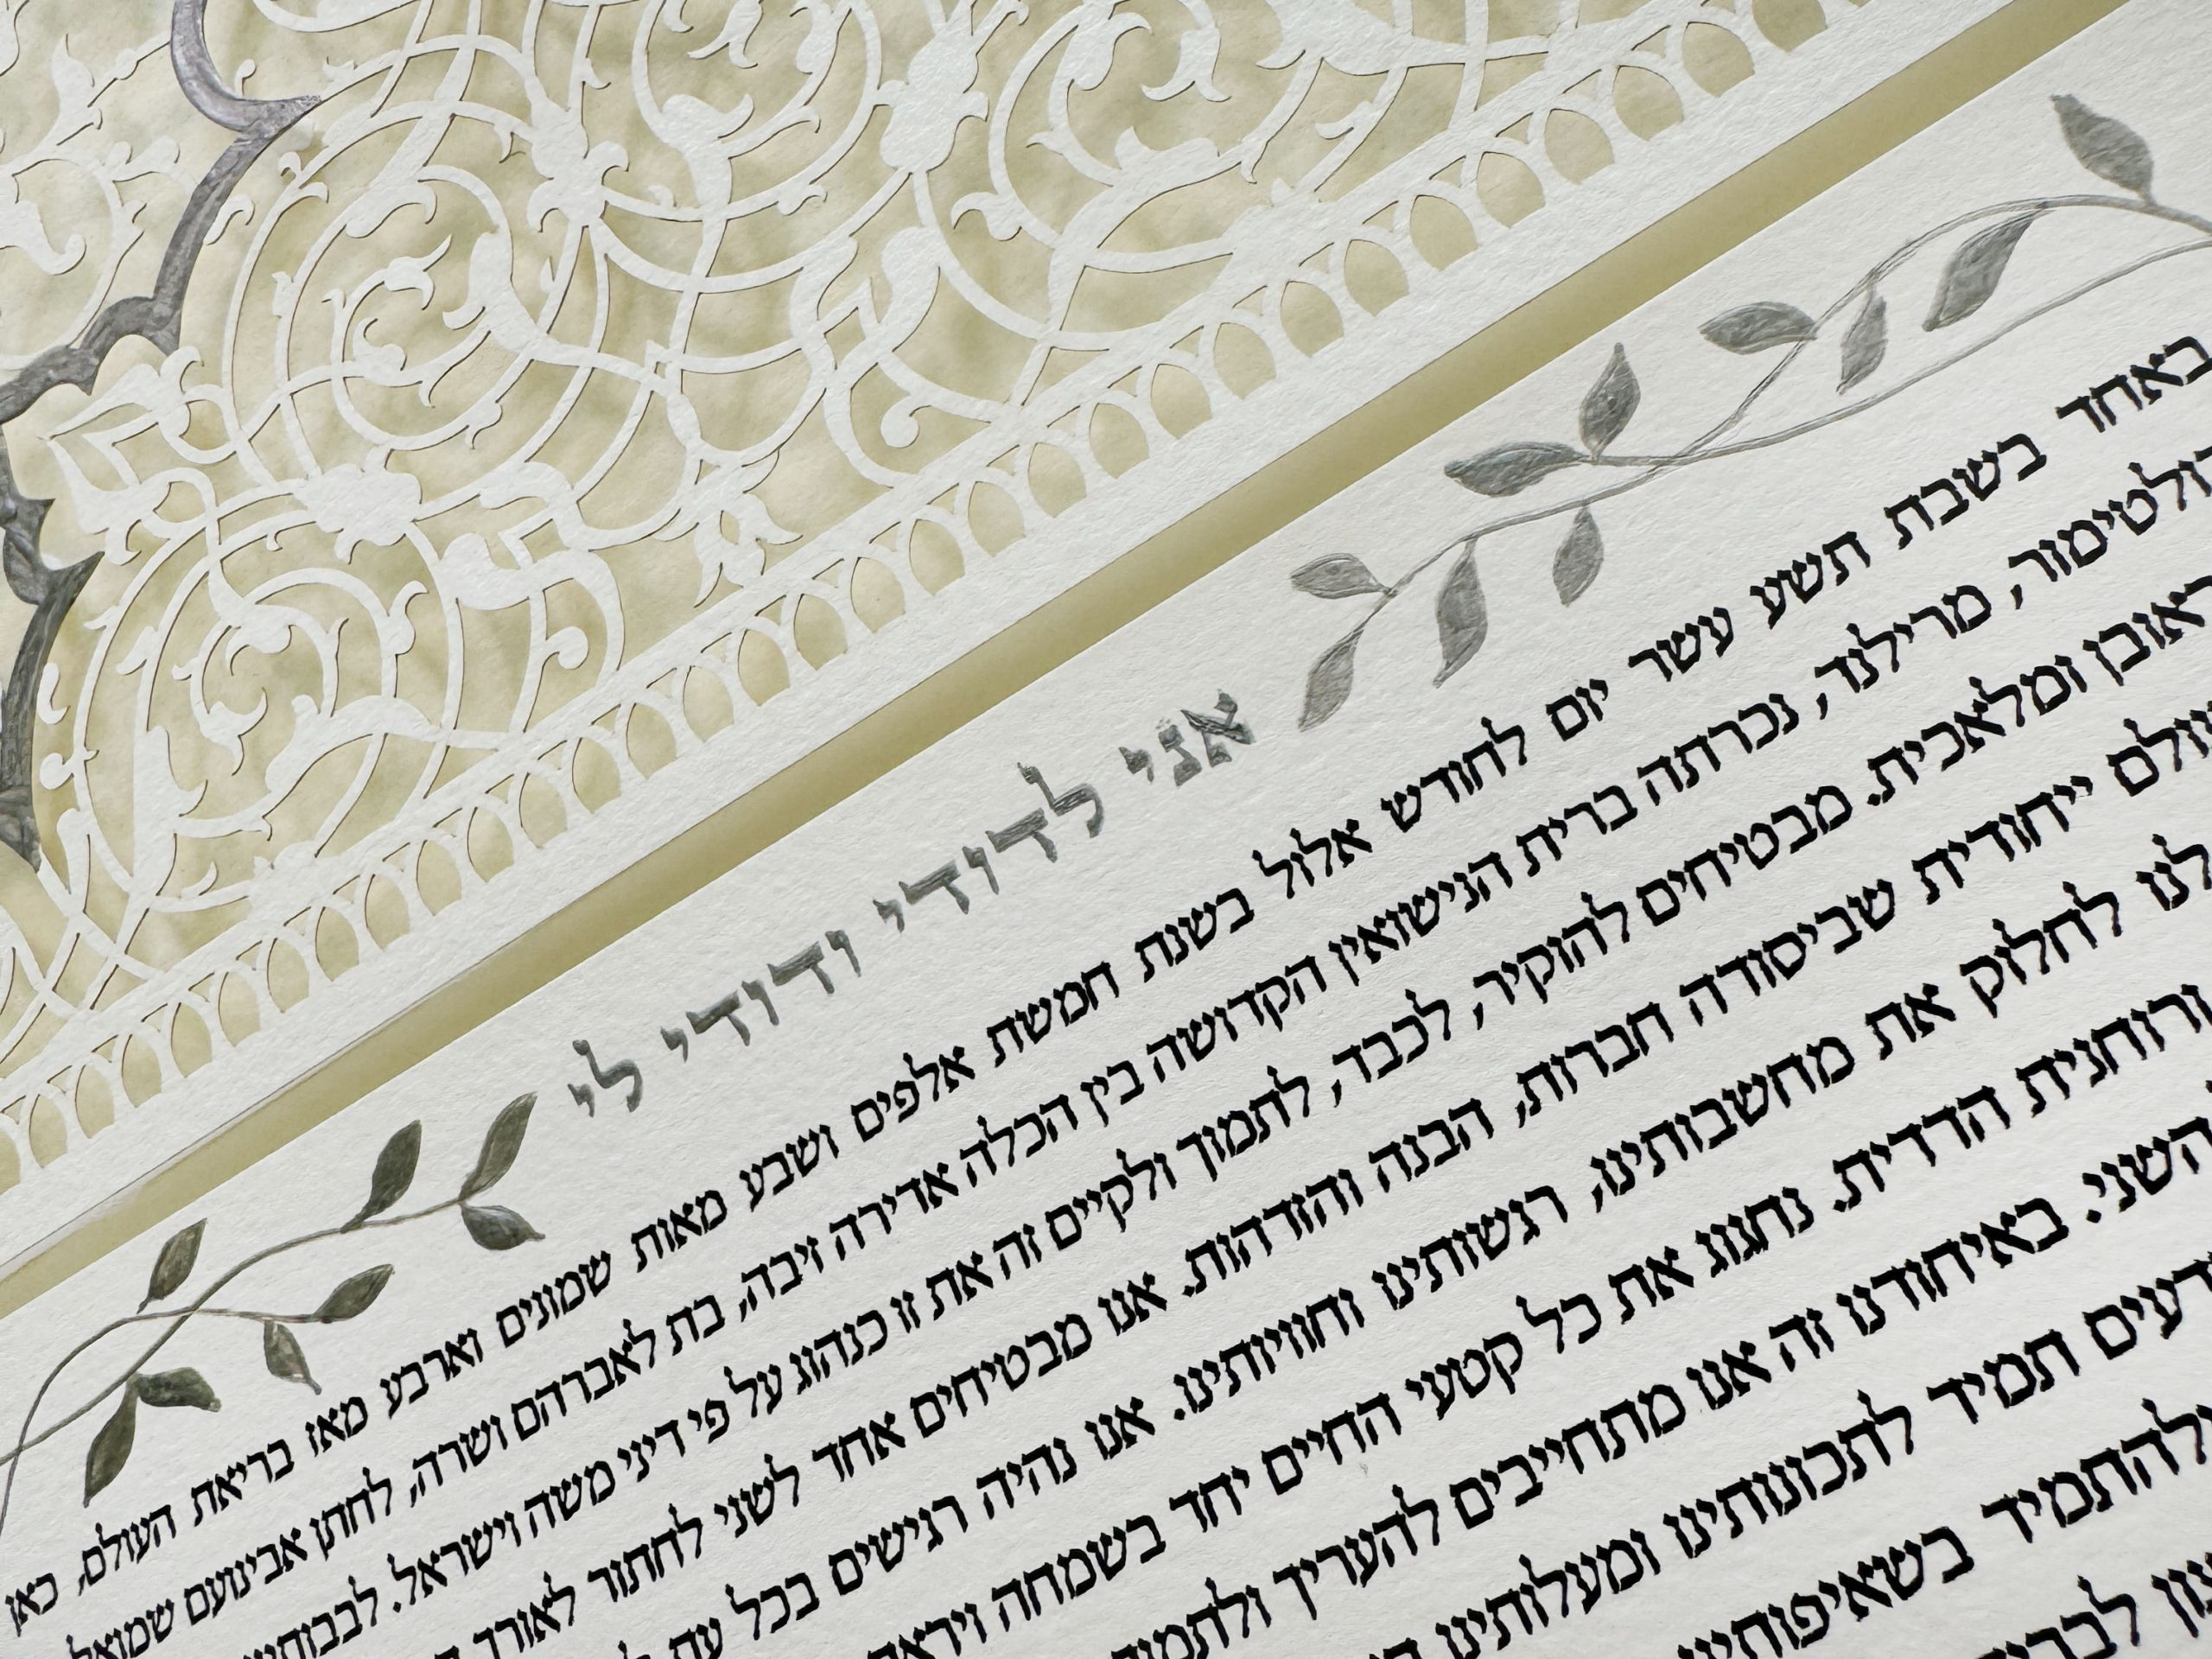 אני לדודי ודודי לי
באחד בשבת תשע עשר יום לחודש אלול בשנת חמשת אלפים ושבע מאות שמונים וארבע מאז בריאת העולם, כאן
מרילנד, נכרתה ברית הנישואין הקדושה בין הכלה אדירה זיבה, בת לאברהם ושרה, לחתן אבינועם שמואל
ומלאכית. מבטיחים להוקיר, לכבד, לתמוך ולקיים זה את זו כנהוג על פי דיני משה וישראל.
ייחודית שביסודה חברות, הבנה והזדהות. אנו מבטיחים אחד לשני לחתור לאורך
לנו לחלוק את מחשבותינו, רגשותינו וחוויותינו. אנו נהיה רגישים בכל עת
ורוחנית הדדית. נחגוג את כל קטעי החיים יחד בשמחה
השני. באיחודנו זה אנו מתחייבים להעריך
תמיד לתכונותינו ומעלותינו
ולהתמיד